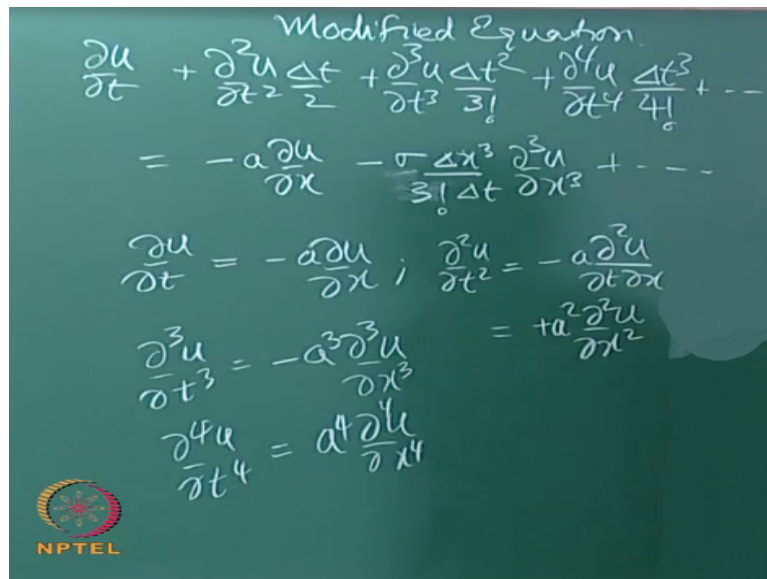 Modified Equation.
∂u/∂t + ∂²u/∂t² Δt/2 + ∂³u/∂t³ Δt²/3! + ∂⁴u/∂t⁴ Δt³/4! + ---
= -a ∂u/∂x - σ Δx³/3! Δt ∂³u/∂x³ + ----
∂u/∂t = -a ∂u/∂x ; ∂²u/∂t² = -a ∂²u/∂t∂x
= +a² ∂²u/∂x²
∂³u/∂t³ = -a³ ∂³u/∂x³
∂⁴u/∂t⁴ = a⁴ ∂⁴u/∂x⁴
NPTEL